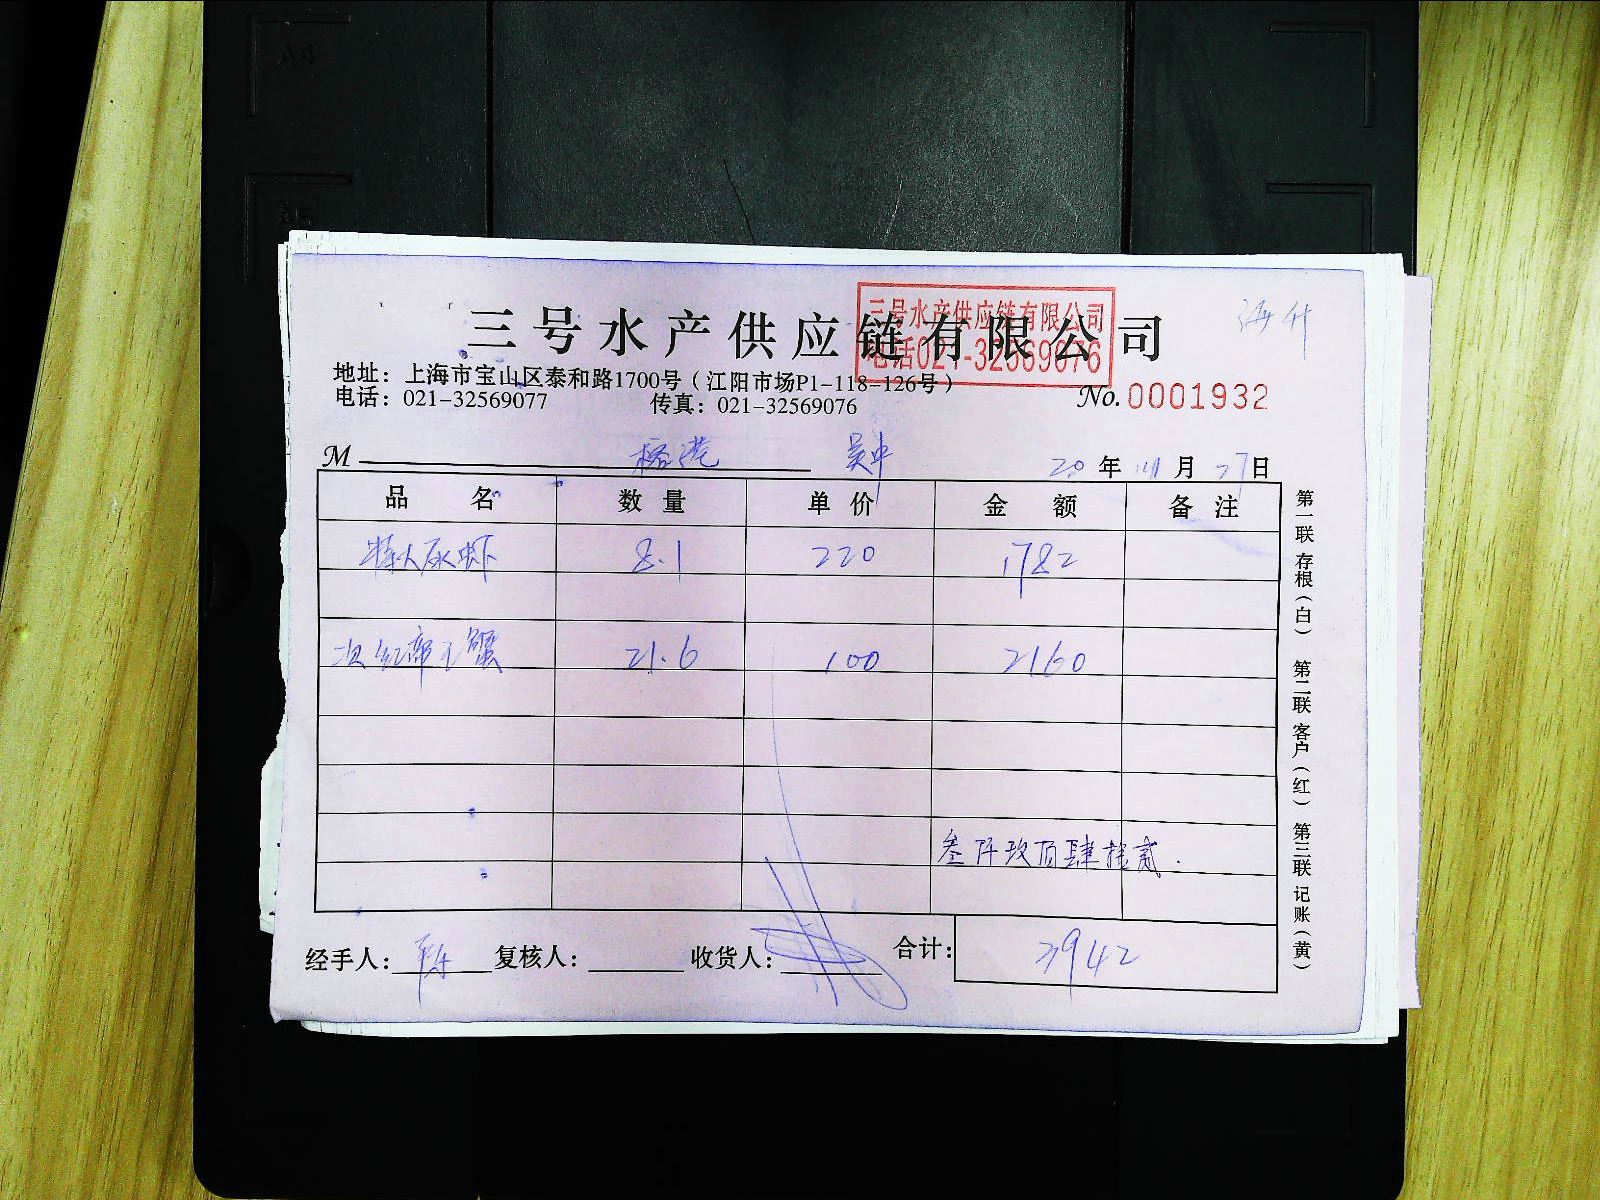 三号水产供应链有限公司
三号水产供应链有限公司
电话021-32569076
海升
地址：上海市宝山区泰和路1700号（江阳市场P1-118-126号）
电话：021-32569077 传真：021-32569076
No. 0001932
M 榕港 吴中 20年 11月 27日
品 名 数 量 单 价 金 额 备 注
特大尿虾 8.1 220 1782
次红帝王蟹 21.6 100 2160
叁仟玖佰肆拾贰.
经手人： 复核人： 收货人： 合计： 3942
第一联 存根（白） 第二联 客户（红） 第三联 记账（黄）